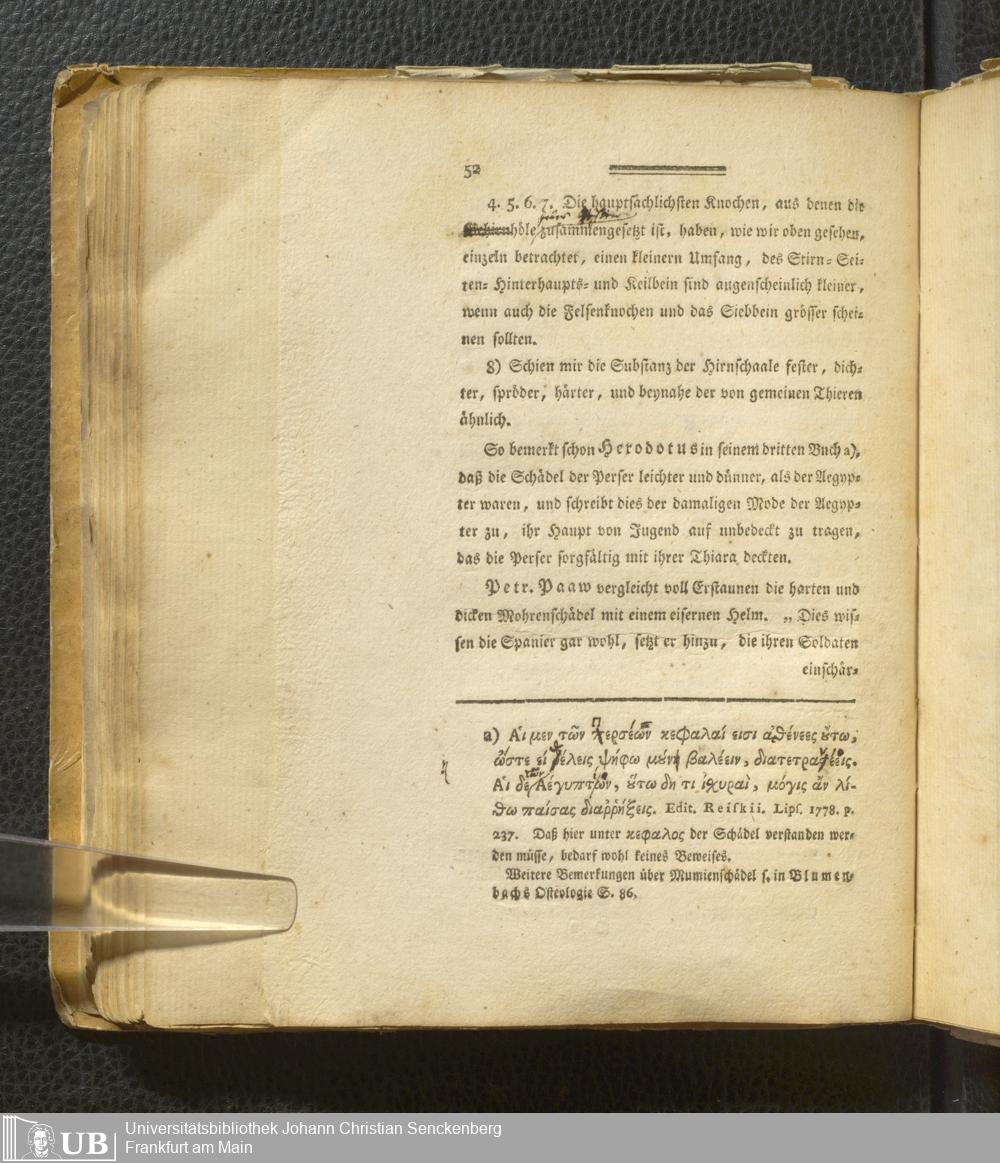 52
4. 5. 6. 7. Die hauptsächlichsten Knochen, aus denen die
höle zusammengesetzt ist, haben, wie wir oben gesehen,
einzeln betrachtet, einen kleinern Umfang, des Stirn- Sei-
ten- Hinterhaupts- und Keilbein sind augenscheinlich kleiner,
wenn auch die Felsenknochen und das Siebbein grösser schei-
nen sollten.
8) Schien mir die Substanz der Hirnschaale fester, dich-
ter, spröder, härter, und beynahe der von gemeinen Thieren
ähnlich.
So bemerkt schon Herodotus in seinem dritten Buch a),
daß die Schädel der Perser leichter und dünner, als der Aegyp-
ter waren, und schreibt dies der damaligen Mode der Aegyp-
ter zu, ihr Haupt von Jugend auf unbedeckt zu tragen,
das die Perser sorgfältig mit ihrer Thiara deckten.
Petr. Paaw vergleicht voll Erstaunen die harten und
dicken Mohrenschädel mit einem eisernen Helm. „ Dies wis-
sen die Spanier gar wohl, setzt er hinzu, die ihren Soldaten
einschär-
a) Αἱ μεν τῶν περσέων κεφαλαί εισι ἀθένεες ὅτω,
ὥστε εἰ θέλεις ψήφω μούνῃ βαλέειν, διατετρανέεις.
Αἱ δὲ τῶν Αἐγυπτίων, ὅτω δη τι ἰχυραὶ, μόγις ἂν λί-
θω παίσας διαῤῥήξεις. Edit. Reiſkii. Lipſ. 1778. p.
237. Daß hier unter κεφαλος der Schädel verstanden wer-
den müsse, bedarf wohl keines Beweises.
Weitere Bemerkungen über Mumienschädel s. in Blumen-
bachs Osteologie S. 86.
UB
Universitätsbibliothek Johann Christian Senckenberg
Frankfurt am Main